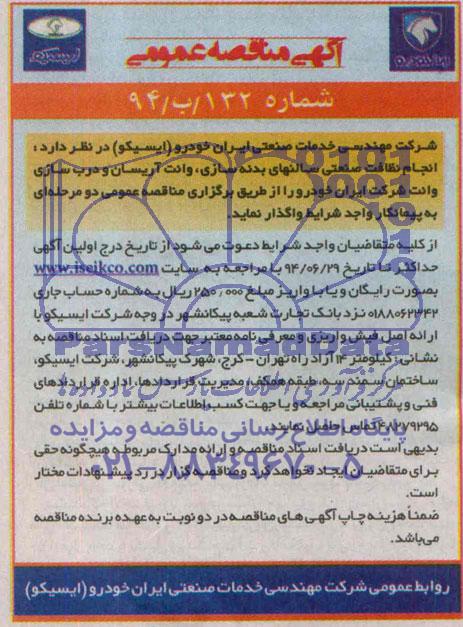 ایران خودرو
آگهی مناقصه عمومی
ایسیکو
شماره ۱۳۲/ب/۹۴
شرکت مهندسی خدمات صنعتی ایران خودرو (ایسیکو) در نظر دارد :
انجام نظافت صنعتی سالنهای بدنه سازی، وانت آریسان و درب سازی
وانت شرکت ایران خودرو را از طریق برگزاری مناقصه عمومی دو مرحله‌ای
به پیمانکار واجد شرایط واگذار نماید.
از کلیه متقاضیان واجد شرایط دعوت می شود از تاریخ درج اولین آگهی
حداکثر تا تاریخ ۹۴/۰۶/۲۹ با مراجعه به سایت www.iseikco.com
بصورت رایگان و یا با واریز مبلغ ۲۵۰٫۰۰۰ ریال به شماره حساب جاری
۰۱۸۸۰۶۲۳۴۲ نزد بانک تجارت شعبه پیکانشهر در وجه شرکت ایسیکو با
ارائه اصل فیش واریزی و معرفی نامه معتبر جهت دریافت اسناد مناقصه به
نشانی: کیلومتر ۱۴ آزاد راه تهران - کرج، شهرک پیکانشهر، شرکت ایسیکو،
ساختمان سمند سه، طبقه همکف، مدیریت قراردادها، اداره قراردادهای
فنی و پشتیبانی مراجعه و یا جهت کسب اطلاعات بیشتر با شماره تلفن
۴۸۲۷۹۲۹۵ تماس حاصل نمایند.
بدیهی است دریافت اسناد مناقصه و ارائه مدارک مربوطه هیچگونه حقی
برای متقاضیان ایجاد نخواهد کرد و مناقصه گزار در رد پیشنهادات مختار
است.
ضمناً هزینه چاپ آگهی های مناقصه در دو نوبت به عهده برنده مناقصه
می‌باشد.
روابط عمومی شرکت مهندسی خدمات صنعتی ایران خودرو (ایسیکو)
پایگاه اطلاع رسانی مناقصه و مزایده
۰۲۱-۸۸۳۴۹۶۷۰-۵